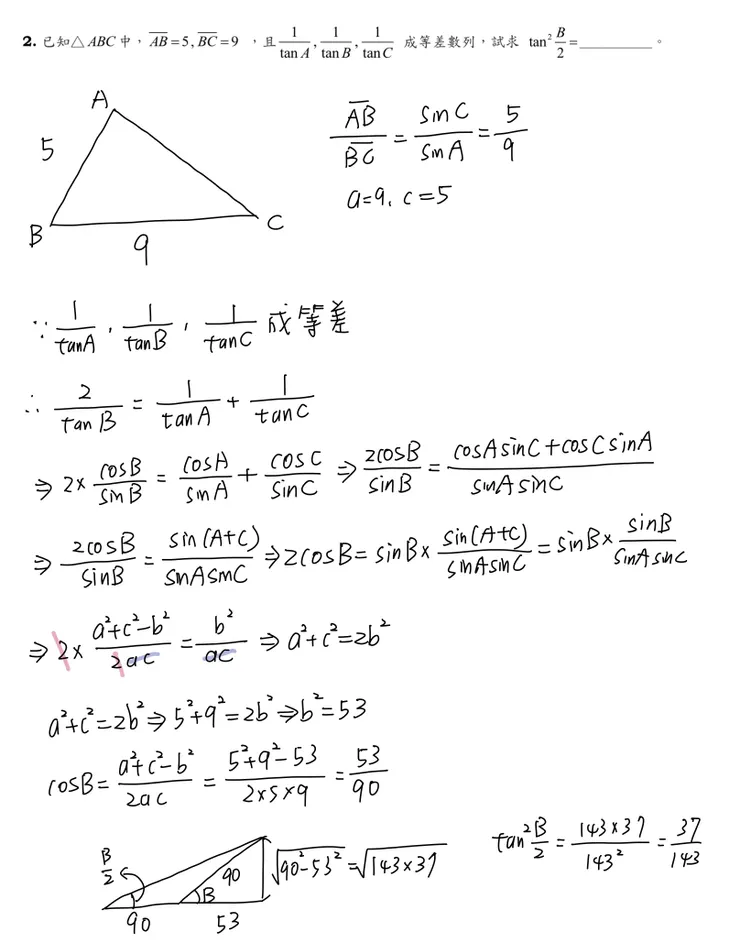 2. 已知△ABC中，AB̅=5, BC̅=9 ，且 1/tan A, 1/tan B, 1/tan C 成等差數列，試求 tan² B/2 = ________。
A
5
B
9
C
AB̅/BC̅ = sinC/sinA = 5/9
a=9, c=5
∵ 1/tanA , 1/tanB , 1/tanC 成等差
∴ 2/tanB = 1/tanA + 1/tanC
⇒ 2× cosB/sinB = cosA/sinA + cosC/sinC ⇒ 2cosB/sinB = (cosAsinC+cosCsinA)/(sinAsinC)
⇒ 2cosB/sinB = sin(A+C)/(sinAsinC) ⇒ 2cosB = sinB× sin(A+C)/(sinAsinC) = sinB× sinB/(sinAsinC)
⇒ 2× (a²+c²-b²)/(2ac) = b²/(ac) ⇒ a²+c²=2b²
a²+c²=2b² ⇒ 5²+9²=2b² ⇒ b²=53
cosB = (a²+c²-b²)/(2ac) = (5²+9²-53)/(2×5×9) = 53/90
B/2
90
B
90
53
√(90²-53²) = √(143×37)
tan² B/2 = (143×37)/143² = 37/143